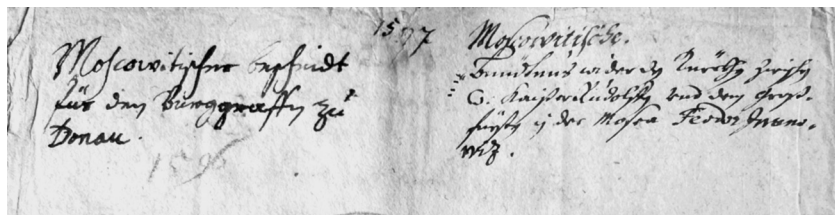 1597
Moscowitischer bescheidt
für den Burggraffen zu
Donau.
1596
Moscowitische.
Bündtnus wider den Türckhen zwischen
G. Kaiser Rudolffen vnd dem Gross-
fürsten in der Mosca Feodor Iwano-
witz.